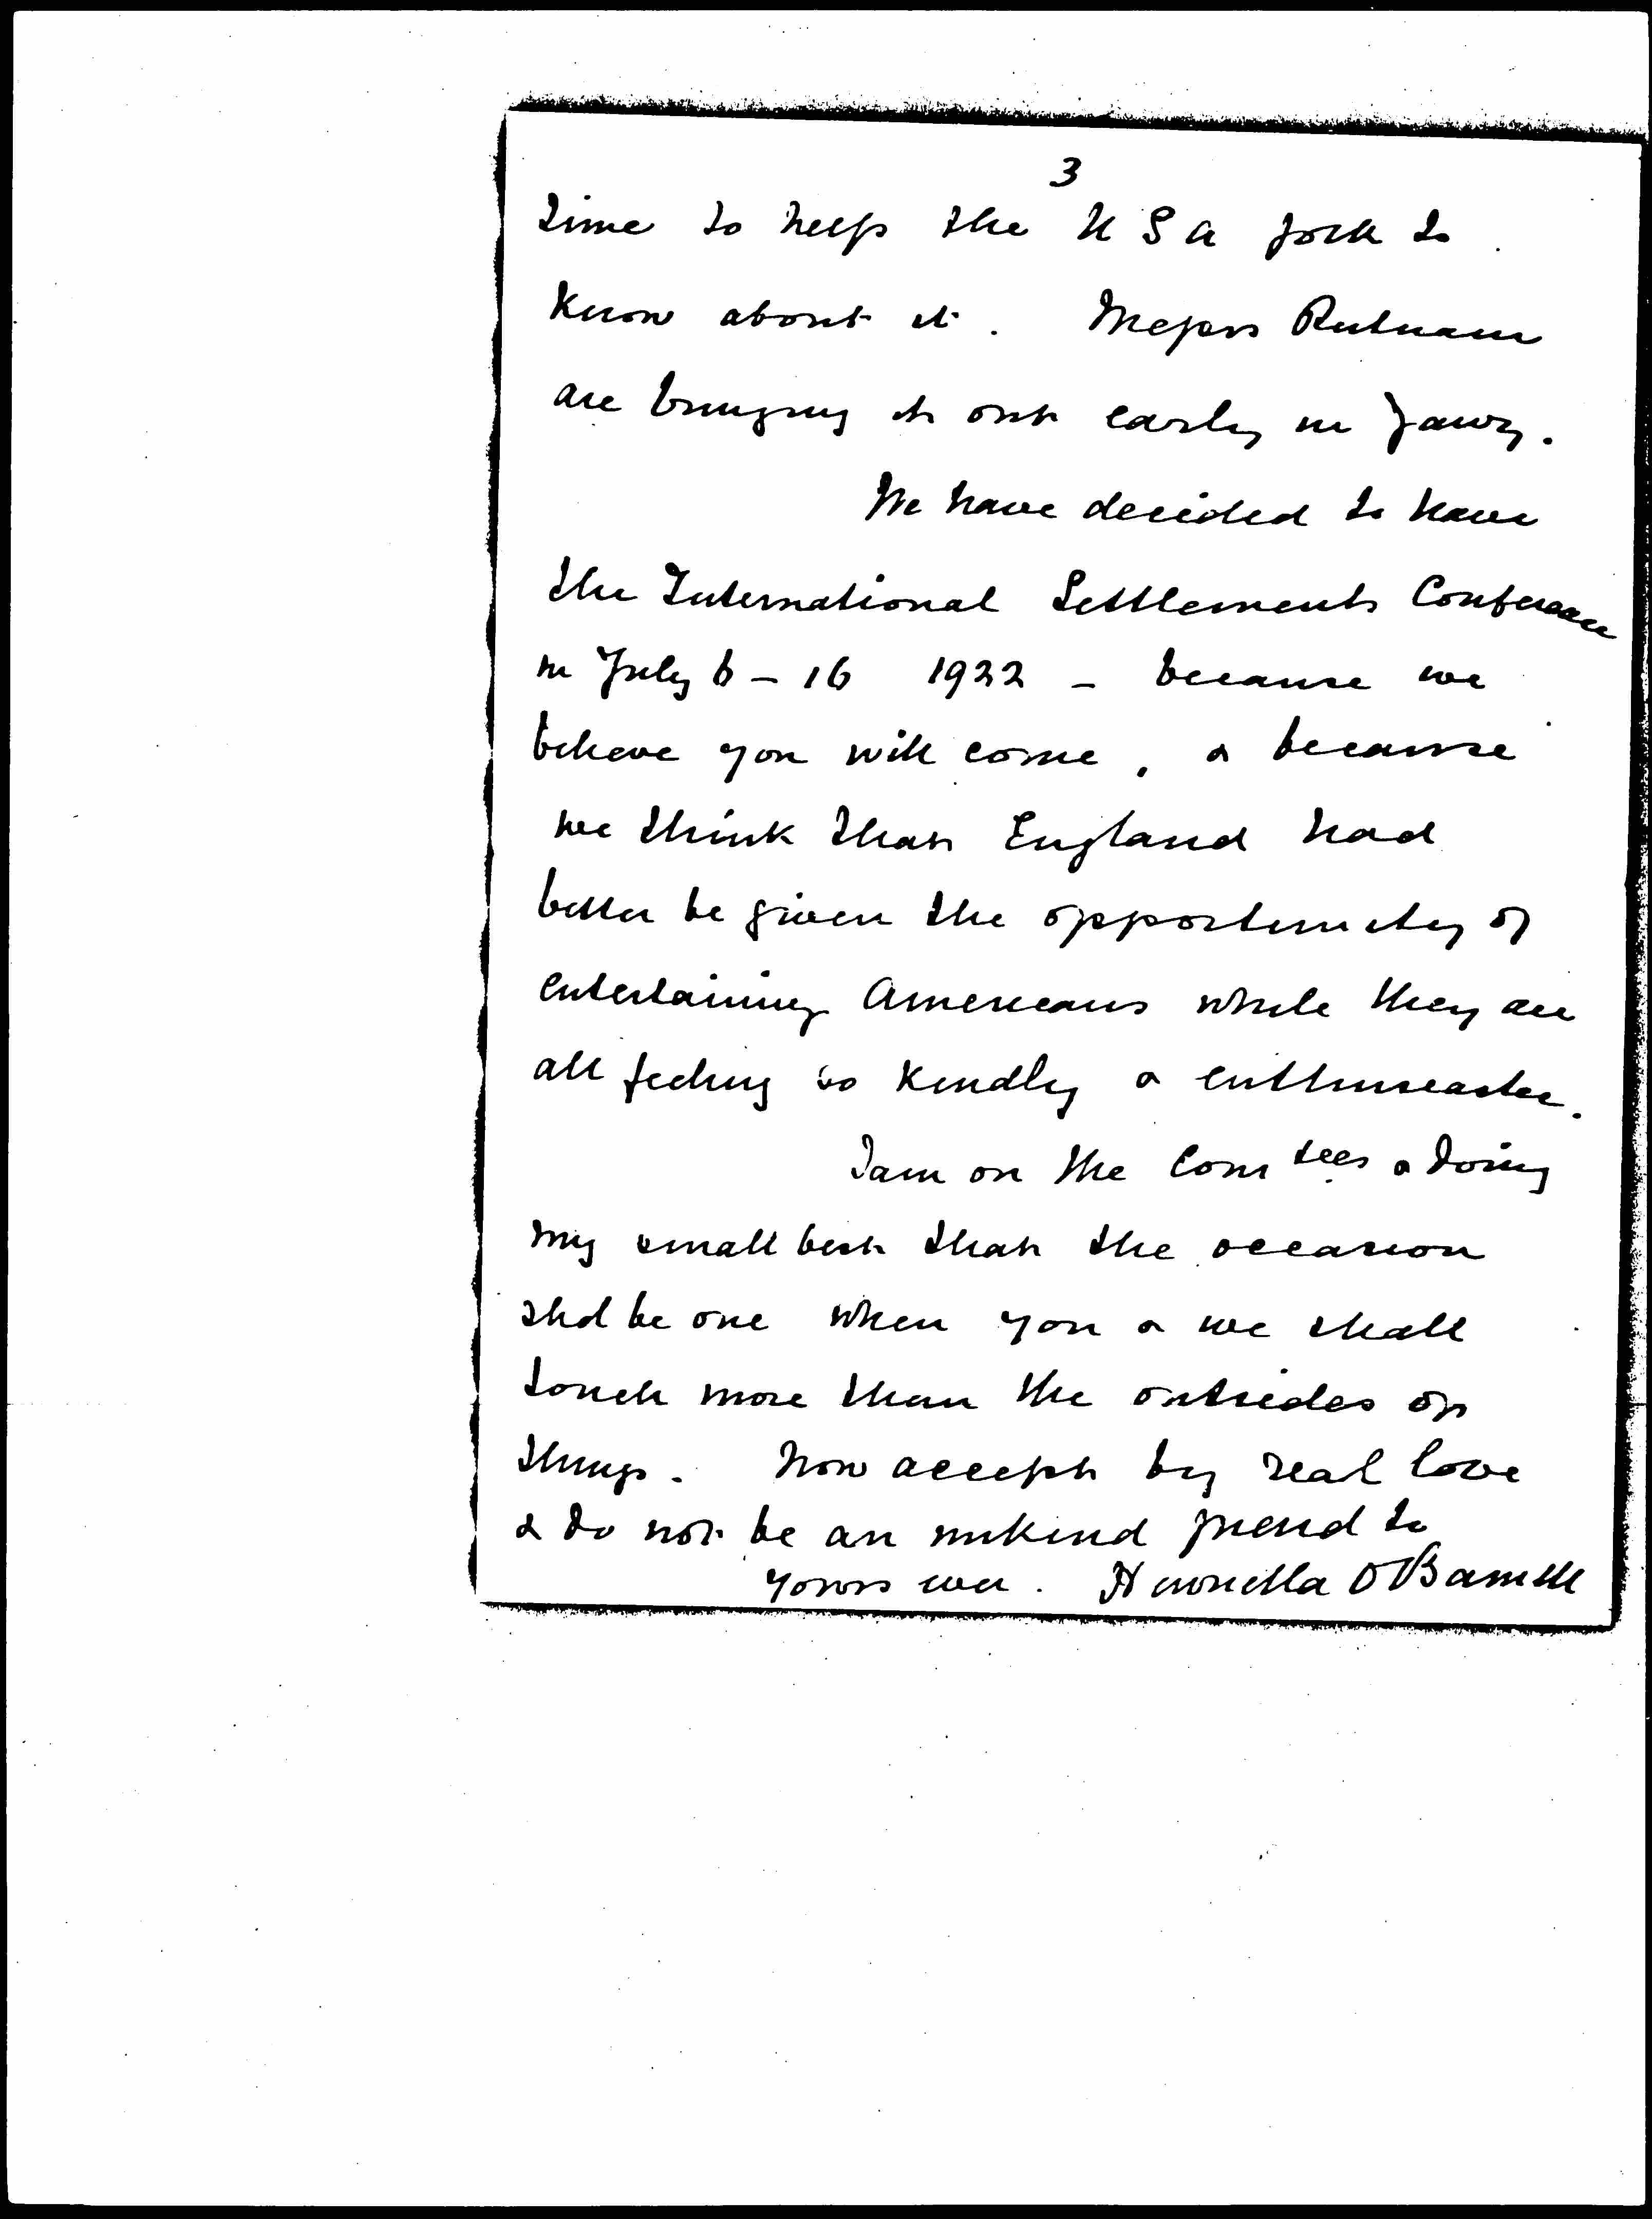 3
time to help the U S A folk to
know about it. Messrs Putnam
are bringing it out early in Janry.
We have decided to have
the International Settlements Conference
in July 6 - 16 1922 - because we
believe you will come, & because
we think that England had
better be given the opportunity of
entertaining Americans while they are
all feeling so kindly & enthusiastic.
I am on the Comtees & doing
my small best that the occasion
shd be one when you & we shall
touch more than the outsides of
things. Now accept my real love
& do not be an unkind friend to
yours ever. Henrietta O Barnett